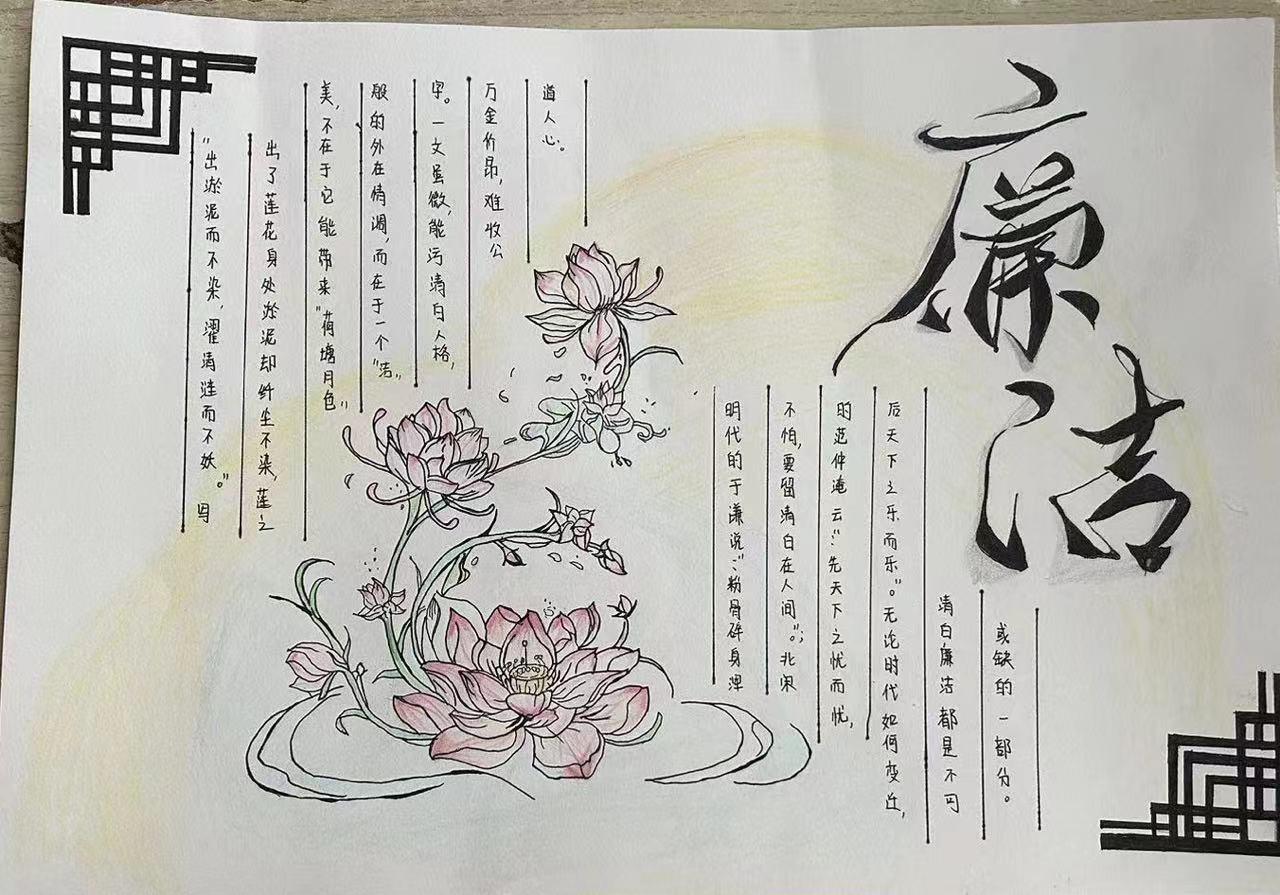 廉洁
"出淤泥而不染，濯清涟而不妖。"写
出了莲花身处淤泥却纤尘不染，莲之
美，不在于它能带来"荷塘月色"
般的外在情调，而在于一个"洁"
字。一文虽微，能污清白人格，
万金价昂，难收公
道人心。
明代的于谦说："粉骨碎身浑
不怕，要留清白在人间"。；北宋
的范仲淹云："先天下之忧而忧，
后天下之乐而乐"。无论时代如何变迁，
清白廉洁都是不可
或缺的一部分。